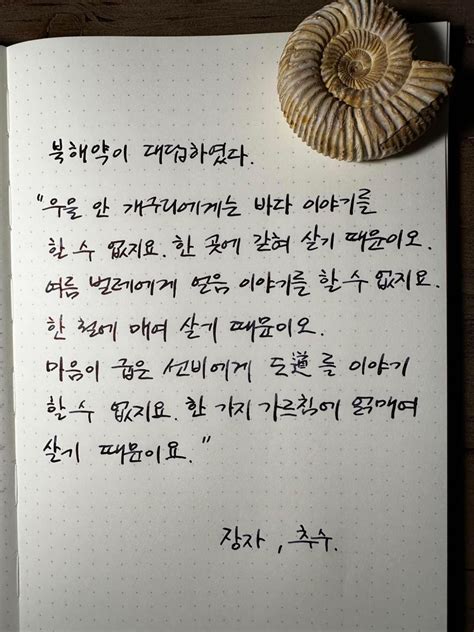 북해약이 대답하였다.
"우물 안 개구리에게는 바다 이야기를
할 수 없지요. 한 곳에 갇혀 살기 때문이오.
여름 벌레에게 얼음 이야기를 할 수 없지요.
한 철에 매여 살기 때문이오.
마음이 굽은 선비에게 도道를 이야기
할 수 없지요. 한 가지 가르침에 얽매여
살기 때문이요."
장자, 추수.